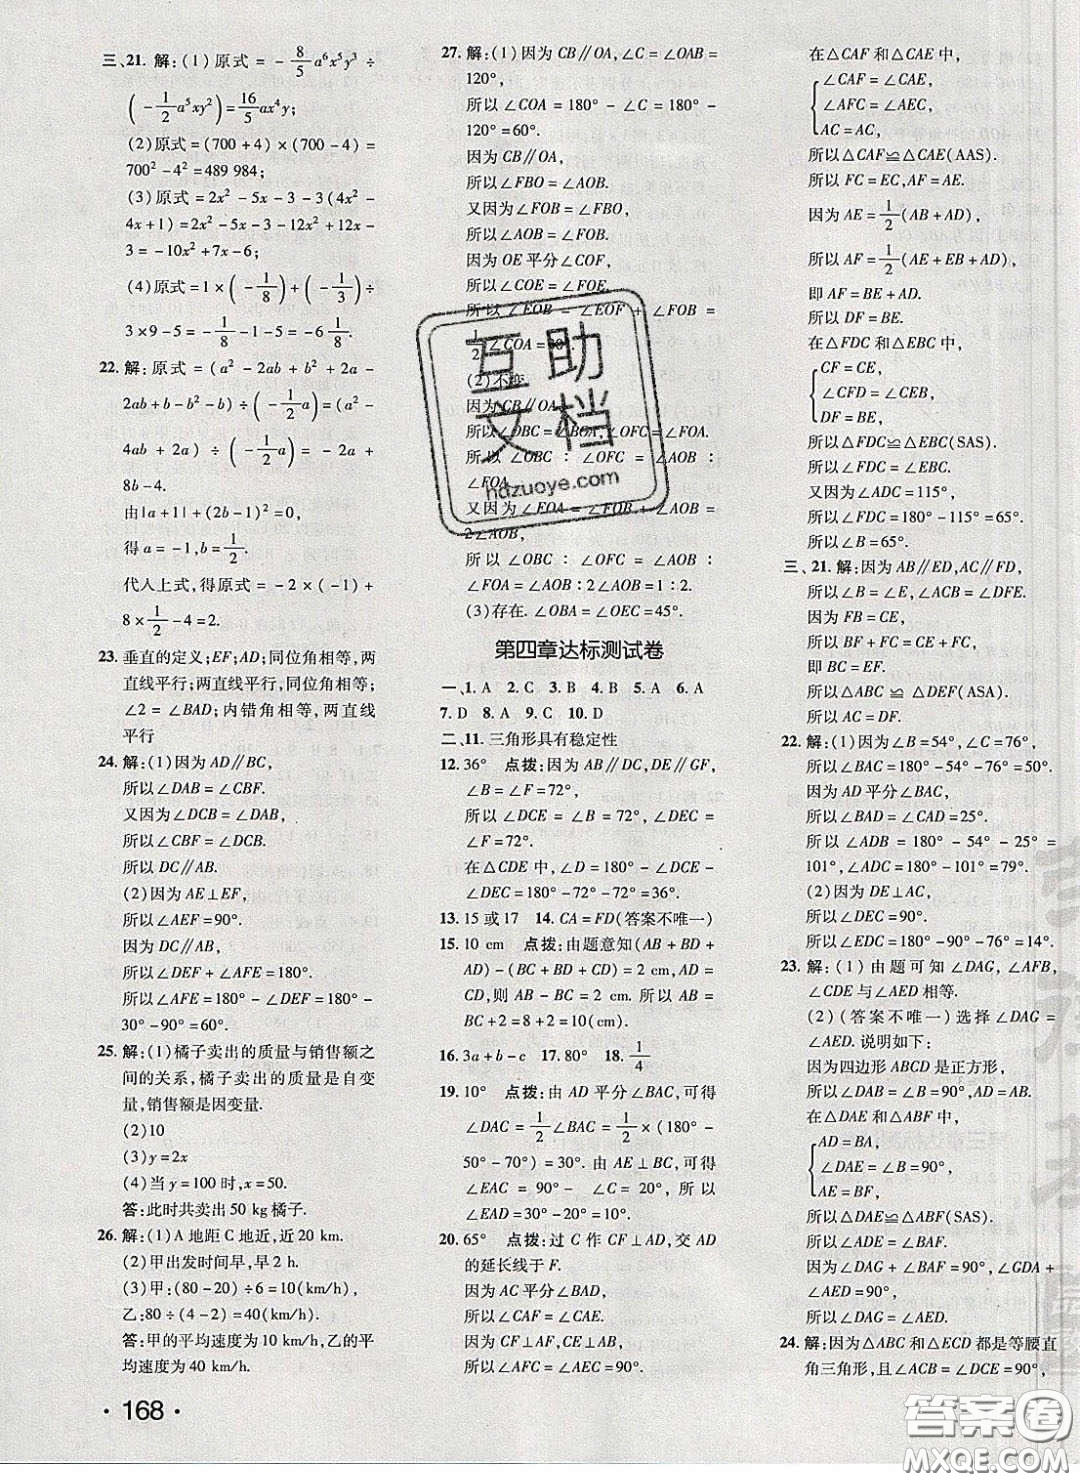 三、21. 解:(1)原式 = -8/5 a⁶x⁵y³ ÷
(-1/2 a⁵xy²) = 16/5 ax⁴y;
(2)原式 = (700+4)×(700-4) =
700² - 4² = 489 984;
(3)原式 = 2x² - 5x - 3 - 3(4x² -
4x+1) = 2x² - 5x - 3 - 12x² + 12x -
3 = -10x² + 7x - 6;
(4)原式 = 1×(-1/8) + (-1/3) ÷
3×9-5 = -1/8 - 1 - 5 = -6 1/8.
22. 解:原式 = (a² - 2ab + b² + 2a -
2ab + b - b² - b) ÷ (-1/2 a) = (a² -
4ab + 2a) ÷ (-1/2 a) = -2a +
8b - 4.
由|a+1| + (2b-1)² = 0,
得 a = -1, b = 1/2.
代人上式,得原式 = -2×(-1) +
8×1/2 - 4 = 2.
23. 垂直的定义;EF;AD;同位角相等,两
直线平行;两直线平行,同位角相等;
∠2 = ∠BAD;内错角相等,两直线
平行
24. 解:(1)因为 AD∥BC,
所以∠DAB = ∠CBF.
又因为∠DCB = ∠DAB,
所以∠CBF = ∠DCB.
所以 DC∥AB.
(2)因为 AE⊥EF,
所以∠AEF = 90°.
因为 DC∥AB,
所以∠DEF + ∠AFE = 180°.
所以∠AFE = 180° - ∠DEF = 180° -
30° - 90° = 60°.
25. 解:(1)橘子卖出的质量与销售额之
间的关系,橘子卖出的质量是自变
量,销售额是因变量.
(2)10
(3)y = 2x
(4)当 y = 100 时,x = 50.
答:此时共卖出 50 kg 橘子.
26. 解:(1)A 地距 C 地近,近 20 km.
(2)甲出发时间早,早 2 h.
(3)甲:(80-20)÷6 = 10(km/h)
乙:80÷(4-2) = 40(km/h)
答:甲的平均速度为 10 km/h,乙的平
均速度为 40 km/h.
· 168 ·
27. 解:(1)因为 CB∥OA,∠C = ∠OAB =
120°,
所以∠COA = 180° - ∠C = 180° -
120° = 60°.
因为 CB∥OA,
所以∠FBO = ∠AOB.
又因为∠FOB = ∠FBO,
所以∠AOB = ∠FOB.
因为 OE 平分∠COF,
所以∠COE = ∠FOE.
所以∠EOB = ∠EOF + ∠FOB =
1/2 ∠COA = 30°.
(2)不变.
因为 CB∥OA,
所以∠OBC = ∠BOA,∠OFC = ∠FOA.
所以∠OBC : ∠OFC = ∠AOB :
∠FOA.
又因为∠FOA = ∠FOB + ∠AOB =
2∠AOB,
所以∠OBC : ∠OFC = ∠AOB :
∠FOA = ∠AOB : 2∠AOB = 1 : 2.
(3)存在. ∠OBA = ∠OEC = 45°.
第四章达标测试卷
一、1. A 2. C 3. B 4. B 5. A 6. A
7. D 8. A 9. C 10. D
二、11. 三角形具有稳定性
12. 36° 点拨:因为 AB∥DE∥GF,
∠B = ∠F = 72°,
所以∠DCE = ∠B = 72°,∠DEC =
∠F = 72°.
在△CDE 中,∠D = 180° - ∠DCE -
∠DEC = 180° - 72° - 72° = 36°.
13. 15 或 17 14. CA = FD(答案不唯一)
15. 10 cm 点拨:由题意知(AB + BD +
AD) - (BC + BD + CD) = 2 cm, AD =
CD,所以 AB - BC = 2 cm. 所以 AB =
BC + 2 = 8 + 2 = 10(cm).
16. 3a + b - c 17. 80° 18. 1/4
19. 10° 点拨:由 AD 平分∠BAC,可得
∠DAC = 1/2 ∠BAC = 1/2 × (180° -
50° - 70°) = 30°. 由 AE⊥BC,可得
∠EAC = 90° - ∠C = 20°,所以
∠EAD = 30° - 20° = 10°.
20. 65° 点拨:过 C 作 CF⊥AD,交 AD
的延长线于 F.
因为 AC 平分∠BAD,
所以∠CAF = ∠CAE.
因为 CF⊥AF,CE⊥AB,
所以∠AFC = ∠AEC = 90°.
在△CAF 和△CAE 中,
∠CAF = ∠CAE,
∠AFC = ∠AEC,
AC = AC,
所以△CAF≌△CAE(AAS).
所以 FC = EC, AF = AE.
因为 AE = 1/2(AB + AD),
所以 AF = 1/2(AE + EB + AD),
即 AF = BE + AD,
所以 DF = BE.
在△FDC 和△EBC 中,
CF = CE,
∠CFD = ∠CEB,
DF = BE,
所以△FDC≌△EBC(SAS).
所以∠FDC = ∠EBC.
又因为∠ADC = 115°,
所以∠FDC = 180° - 115° = 65°.
所以∠B = 65°.
三、21. 解:因为 AB∥ED,AC∥FD,
所以∠B = ∠E,∠ACB = ∠DFE.
因为 FB = CE,
所以 BF + FC = CE + FC,
即 BC = EF.
所以△ABC ≌ △DEF(ASA).
所以 AC = DF.
22. 解:(1)因为∠B = 54°,∠C = 76°,
所以∠BAC = 180° - 54° - 76° = 50°.
因为 AD 平分∠BAC,
所以∠BAD = ∠CAD = 25°.
所以∠ADB = 180° - 54° - 25° =
101°,∠ADC = 180° - 101° = 79°.
(2)因为 DE⊥AC,
所以∠DEC = 90°.
所以∠EDC = 180° - 90° - 76° = 14°.
23. 解:(1)由题可知∠DAG,∠AFB,
∠CDE 与∠AED 相等.
(2)(答案不唯一)选择∠DAG =
∠AED. 说明如下:
因为四边形 ABCD 是正方形,
所以∠DAB = ∠B = 90°,AD = AB.
在△DAE 和△ABF 中,
AD = BA,
∠DAE = ∠B = 90°,
AE = BF,
所以△DAE≌△ABF(SAS).
所以∠ADE = ∠BAF.
因为∠DAG + ∠BAF = 90°,∠GDA +
∠AED = 90°,
所以∠DAG = ∠AED.
24. 解:因为△ABC 和△ECD 都是等腰直
角三角形,且∠ACB = ∠DCE = 90°,
互助文档
hdzuoye.com
答案圈
MXQE.COM